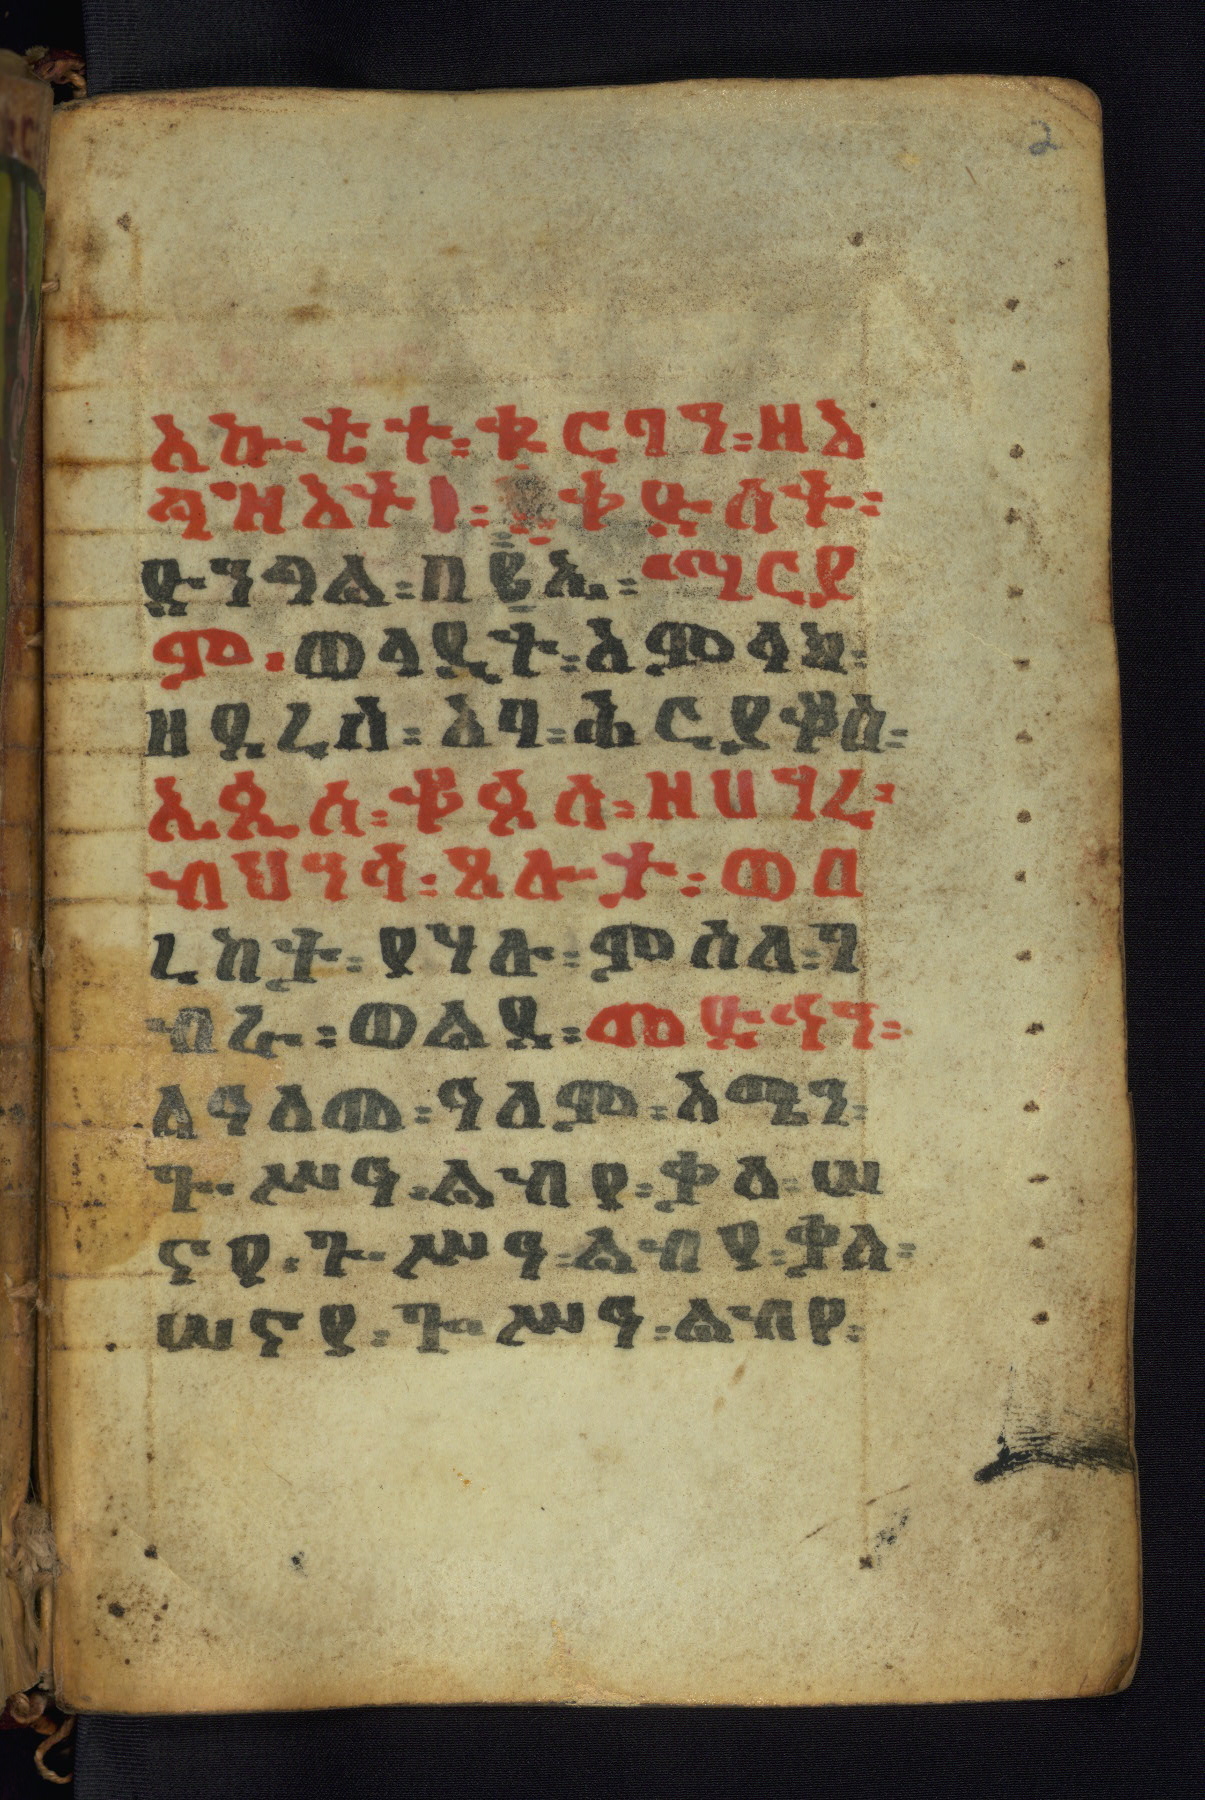 2
አኩቴተ፡ ቍርባን፡ ዘእ
ግዝእትነ፡ ቅድስት፡
ድንግል፡ በ፪ኤ፡ ማርያ
ም፡ ወላዲት፡ አምላክ፡
ዘደረሰ፡ አባ፡ ሕርያቆስ፡
ኤጲስ፡ ቆጶስ፡ ዘሀገረ፡
ብህንሳ፡ ጸሎት፡ ወበ
ረከት፡ የሃሉ፡ ምስለ፡ ገ
ብሩ፡ ወልደ፡ መድኅን፡
ለዓለመ፡ ዓለም፡ አሜን፡
ጐሥዓ፡ ልብየ፡ ቃለ፡ ሠ
ናየ፡ ጐሥዓ፡ ልብየ፡ ቃለ፡
ሠናየ፡ ጐሥዓ፡ ልብየ፡